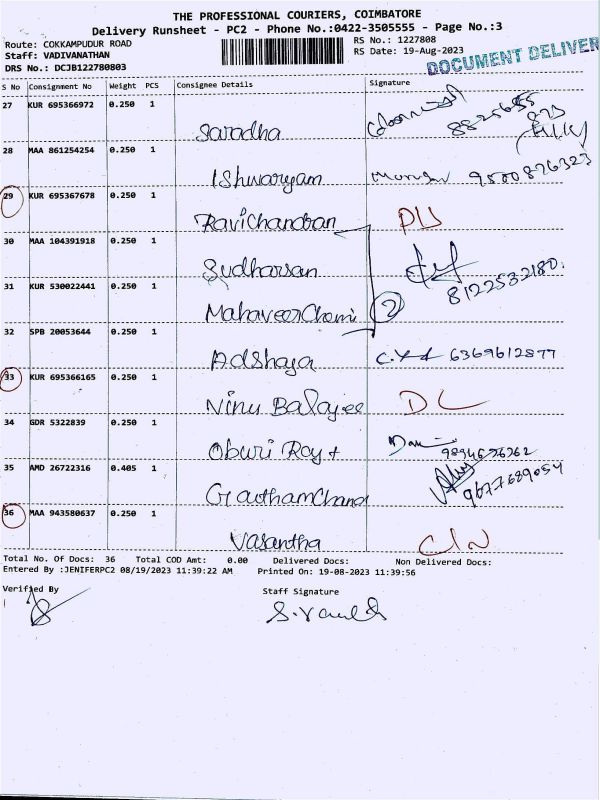 THE PROFESSIONAL COURIERS, COIMBATORE
Delivery Runsheet - PC2 - Phone No.:0422-3505555 - Page No.:3
Route: COKKAMPUDUR ROAD
RS No.: 1227808
Staff: VADIVANATHAN
RS Date: 19-Aug-2023
DRS No.: DCJB122780803
DOCUMENT DELIVER
S No Consignment No Weight PCS Consignee Details Signature
27 KUR 695366972 0.250 1
Saradha
28 MAA 861254254 0.250 1
Ishwaryam 9500876323
29 KUR 695367678 0.250 1
Ravichandran
30 MAA 104391918 0.250 1
Sudharsan
31 KUR 530022441 0.250 1
MahaveerChami 2 8122532180
32 SPB 20053644 0.250 1
Adshaya 6369612877
33 KUR 695366165 0.250 1
Ninu Balajee DL
34 GDR 5322839 0.250 1
Oburi Raj t 9894676262
35 AMD 26722316 0.405 1
GauthamChand 9677689054
36 MAA 943580637 0.250 1
Vasantha
Total No. Of Docs: 36 Total COD Amt: 0.00 Delivered Docs: Non Delivered Docs:
Entered By :JENIFERPC2 08/19/2023 11:39:22 AM Printed On: 19-08-2023 11:39:56
Verified By Staff Signature